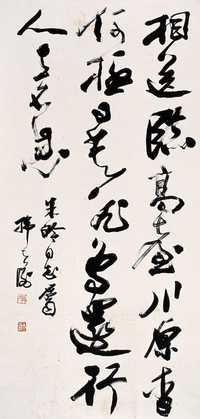 相送臨高臺川原杳
何極日暮飛鳥還行
人去不息
同志屬